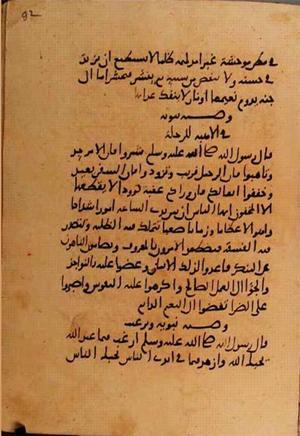 92
في حسنه ولا ينقص من سيئه ثم
جنه يدوم نعيمها او نار لا ينفد عذابها
وصيه نبويه
في الاهبه للرحلة
قال رسول الله صلى الله عليه وسلم شمروا فان الامر جد
وتاهبوا فان الرحيل قريب وتزودوا فان السفر بعيد
وخففوا اثقالكم فان وراكم عقبه كوودا لا يقطعها
الا المخفون ايها الناس ان بين يدي الساعه امورا شدادا
واهوالا عظاما وزمانا صعبا يتملك فيه الظلمه ويتصدر
فيه الفسقه فيضطهد الامرون بالمعروف ويضام الناهون
عن المنكر فاعدوا لذلك الايمان وعضوا عليه بالنواجذ
والجوا الى العمل الصالح واكرهوا عليه النفوس واصبروا
على الضرا تفضوا الى النعيم الدايم
وصيه نبويه
قال رسول الله صلى الله عليه وسلم ارغب فيما عند الله
يحبك الله وازهد فيما في ايدي الناس يحبك الناس